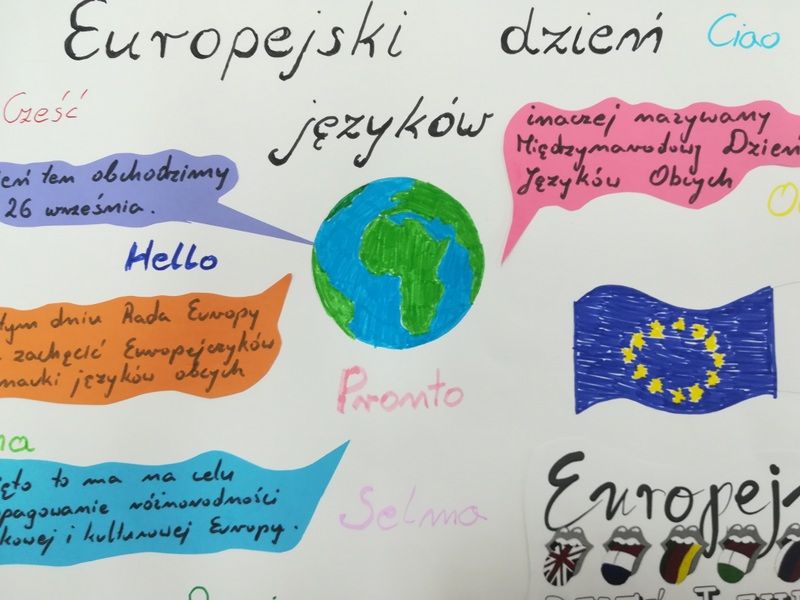 Europejski dzień
Ciao
języków
Cześć
inaczej nazywany
Międzynarodowy Dzień
Języków Obcych
ten obchodzimy
26 września.
Hello
tym dniu Rada Europy
zachęcić Europejczyków
nauki języków obcych
Pronto
to ma na celu
różnorodności
i kulturowej Europy.
Selma